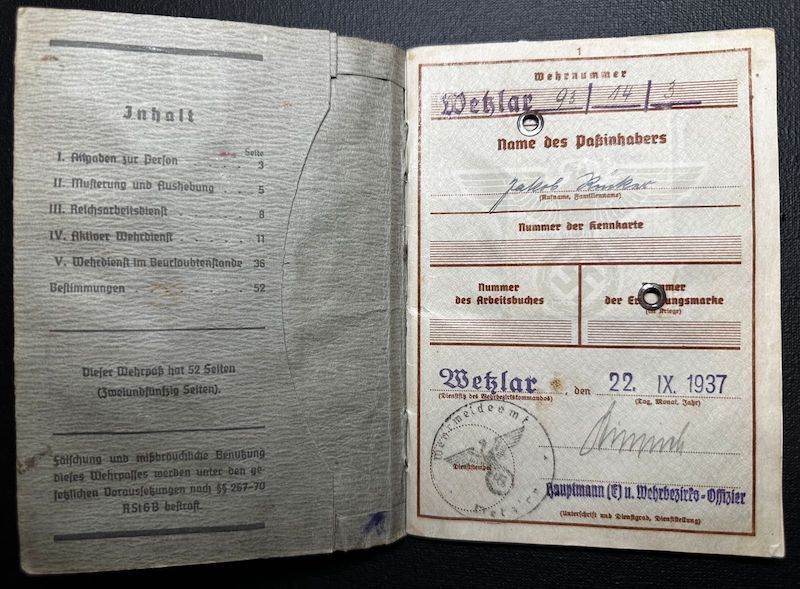 Inhalt
Seite
I. Angaben zur Person . . . 3
II. Musterung und Aushebung . 5
III. Reichsarbeitsdienst . . . . 8
IV. Aktiver Wehrdienst . . . . 11
V. Wehrdienst im Beurlaubtenstande 36
Bestimmungen . . . . . . 52
Dieser Wehrpaß hat 52 Seiten
(Zweiundfünfzig Seiten).
Fälschung und mißbräuchliche Benutzung
dieses Wehrpasses werden unter den ge-
setzlichen Voraussetzungen nach §§ 267-70
RStGB bestraft.
1
Wehrnummer
Wetzlar 93/14/3
Name des Paßinhabers
Jakob
(Rufname, Familienname)
Nummer der Kennkarte
Nummer
des Arbeitsbuches
Nummer
der Erkennungsmarke
(im Kriege)
Wetzlar, den 22. IX. 1937
(Dienstsitz des Wehrbezirkskommandos) (Tag, Monat, Jahr)
Wehrmeldeamt
Dienststempel
Wetzlar
Hauptmann (E) u. Wehrbezirks-Offizier
(Unterschrift und Dienstgrad, Dienststellung)